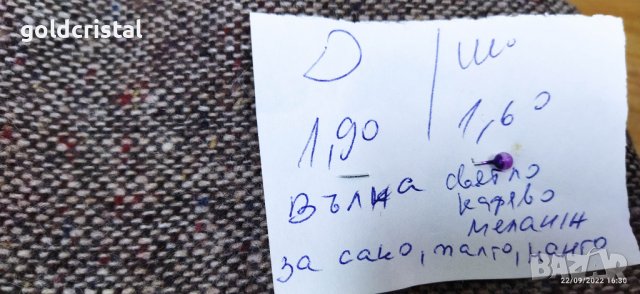 goldcristal
Д / Ш
1,90 1,60
вълна светло
кафяво
меланж
за сако, палто,
BAZAR
22/09/2022 16:30